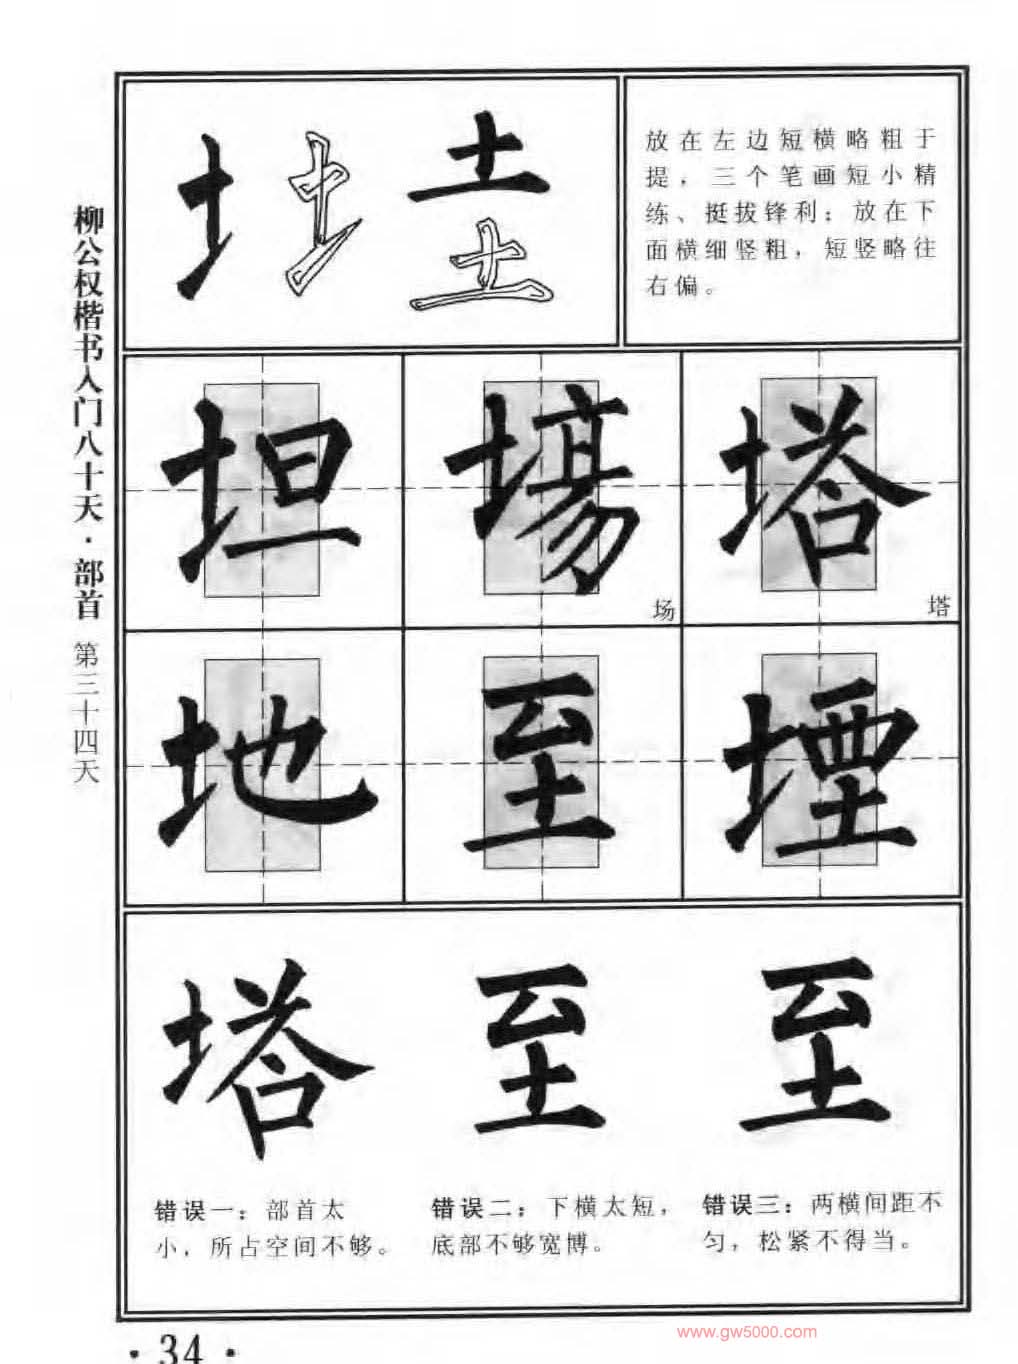 柳公权楷书入门八十天·部首 第三十四天
土 土
放在左边短横略粗于
提，三个笔画短小精
练、挺拔锋利；放在下
面横细竖粗，短竖略往
右偏。
坦 場 塔
场 塔
地 至 堙
塔 至 至
错误一：部首太
小，所占空间不够。
错误二：下横太短，
底部不够宽博。
错误三：两横间距不
匀，松紧不得当。
·34·
www.gw5000.com